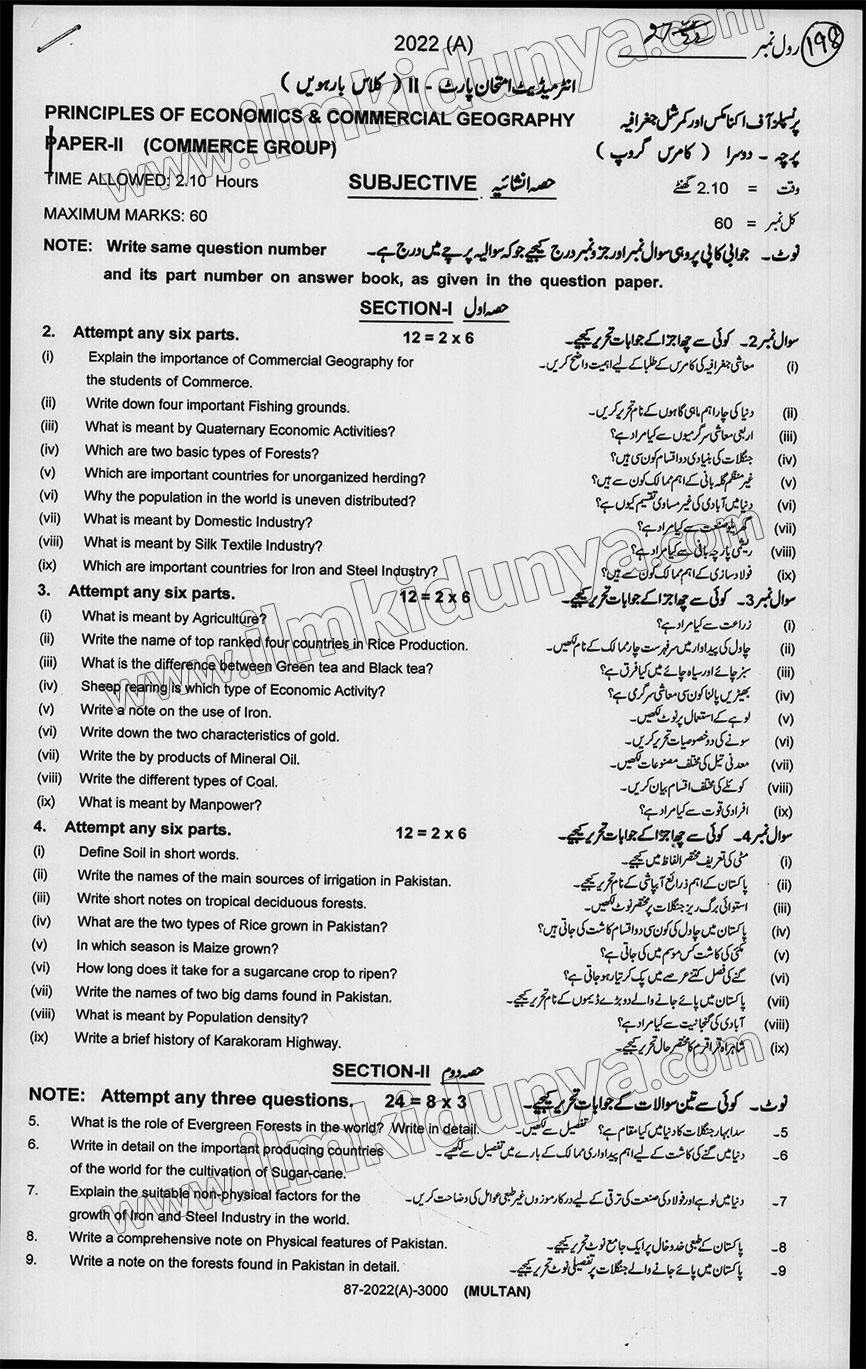 2022 (A)
رول نمبر
198
انٹرمیڈیٹ امتحان پارٹ - II ( کلاس بارھویں )
PRINCIPLES OF ECONOMICS & COMMERCIAL GEOGRAPHY پرنسپلز آف اکنامکس اور کمرشل جغرافیہ
PAPER-II (COMMERCE GROUP) پرچہ - دوسرا ( کامرس گروپ )
TIME ALLOWED: 2.10 Hours SUBJECTIVE حصہ انشائیہ وقت = 2.10 گھنٹے
MAXIMUM MARKS: 60 کل نمبر = 60
NOTE: Write same question number نوٹ۔ جوابی کاپی پر وہی سوال نمبر اور جزو نمبر درج کیجیے جو کہ سوالیہ پرچے میں درج ہے۔
and its part number on answer book, as given in the question paper.
SECTION-I حصہ اول
2. Attempt any six parts. 12 = 2 x 6 سوال نمبر 2۔ کوئی سے چھ اجزا کے جوابات تحریر کیجیے۔
(i) Explain the importance of Commercial Geography for معاشی جغرافیہ کی کامرس کے طلبا کے لیے اہمیت واضح کریں۔ (i)
the students of Commerce.
(ii) Write down four important Fishing grounds. دنیا کی چار اہم ماہی گاہوں کے نام تحریر کریں۔ (ii)
(iii) What is meant by Quaternary Economic Activities? اربعی معاشی سرگرمیوں سے کیا مراد ہے؟ (iii)
(iv) Which are two basic types of Forests? جنگلات کی بنیادی دو اقسام کون سی ہیں؟ (iv)
(v) Which are important countries for unorganized herding? غیر منظم گلہ بانی کے اہم ممالک کون سے ہیں؟ (v)
(vi) Why the population in the world is uneven distributed? دنیا میں آبادی کی غیر مساوی تقسیم کیوں ہے؟ (vi)
(vii) What is meant by Domestic Industry? گھریلو صنعت سے کیا مراد ہے؟ (vii)
(viii) What is meant by Silk Textile Industry? ریشمی پارچہ بافی سے کیا مراد ہے؟ (viii)
(ix) Which are important countries for Iron and Steel Industry? فولاد سازی کے اہم ممالک کون سے ہیں؟ (ix)
3. Attempt any six parts. 12 = 2 x 6 سوال نمبر 3۔ کوئی سے چھ اجزا کے جوابات تحریر کیجیے۔
(i) What is meant by Agriculture? زراعت سے کیا مراد ہے؟ (i)
(ii) Write the name of top ranked four countries in Rice Production. چاول کی پیداوار میں سرفہرست چار ممالک کے نام لکھیں۔ (ii)
(iii) What is the difference between Green tea and Black tea? سبز چائے اور سیاہ چائے میں کیا فرق ہے؟ (iii)
(iv) Sheep rearing is which type of Economic Activity? بھیڑیں پالنا کون سی معاشی سرگرمی ہے؟ (iv)
(v) Write a note on the use of Iron. لوہے کے استعمال پر نوٹ لکھیں۔ (v)
(vi) Write down the two characteristics of gold. سونے کی دو خصوصیات تحریر کریں۔ (vi)
(vii) Write the by products of Mineral Oil. معدنی تیل کی مختلف مصنوعات لکھیں۔ (vii)
(viii) Write the different types of Coal. کوئلے کی مختلف اقسام بیان کریں۔ (viii)
(ix) What is meant by Manpower? افرادی قوت سے کیا مراد ہے؟ (ix)
4. Attempt any six parts. 12 = 2 x 6 سوال نمبر 4۔ کوئی سے چھ اجزا کے جوابات تحریر کیجیے۔
(i) Define Soil in short words. مٹی کی تعریف مختصر الفاظ میں کیجیے۔ (i)
(ii) Write the names of the main sources of irrigation in Pakistan. پاکستان کے اہم ذرائع آبپاشی کے نام تحریر کیجیے۔ (ii)
(iii) Write short notes on tropical deciduous forests. استوائی برگ ریز جنگلات پر مختصر نوٹ لکھیں۔ (iii)
(iv) What are the two types of Rice grown in Pakistan? پاکستان میں چاول کی کون سی دو اقسام کاشت کی جاتی ہیں؟ (iv)
(v) In which season is Maize grown? مکئی کی کاشت کس موسم میں کی جاتی ہے؟ (v)
(vi) How long does it take for a sugarcane crop to ripen? گنے کی فصل کتنے عرصے میں پک کر تیار ہو جاتی ہے؟ (vi)
(vii) Write the names of two big dams found in Pakistan. پاکستان میں پائے جانے والے دو بڑے ڈیموں کے نام تحریر کیجیے۔ (vii)
(viii) What is meant by Population density? آبادی کی گنجانیت سے کیا مراد ہے؟ (viii)
(ix) Write a brief history of Karakoram Highway. شاہراہ قراقرم کا مختصر حال تحریر کیجیے۔ (ix)
SECTION-II حصہ دوم
NOTE: Attempt any three questions. 24 = 8 x 3 نوٹ۔ کوئی سے تین سوالات کے جوابات تحریر کیجیے۔
5. What is the role of Evergreen Forests in the world? Write in detail. سدا بہار جنگلات کا دنیا میں کیا مقام ہے؟ تفصیل سے لکھیں۔ 5۔
6. Write in detail on the important producing countries دنیا میں گنے کی کاشت کے لیے اہم پیداواری ممالک کے بارے میں تفصیل سے لکھیے۔ 6۔
of the world for the cultivation of Sugar-cane.
7. Explain the suitable non-physical factors for the دنیا میں لوہے اور فولاد کی صنعت کی ترقی کے لیے درکار موزوں غیر طبعی عوامل کی وضاحت کریں۔ 7۔
growth of Iron and Steel Industry in the world.
8. Write a comprehensive note on Physical features of Pakistan. پاکستان کے طبعی خدوخال پر ایک جامع نوٹ تحریر کیجیے۔ 8۔
9. Write a note on the forests found in Pakistan in detail. پاکستان میں پائے جانے والے جنگلات پر تفصیلی نوٹ تحریر کیجیے۔ 9۔
87-2022(A)-3000 (MULTAN)
www.ilmkidunya.com
www.ilmkidunya.com
www.ilmkidunya.com